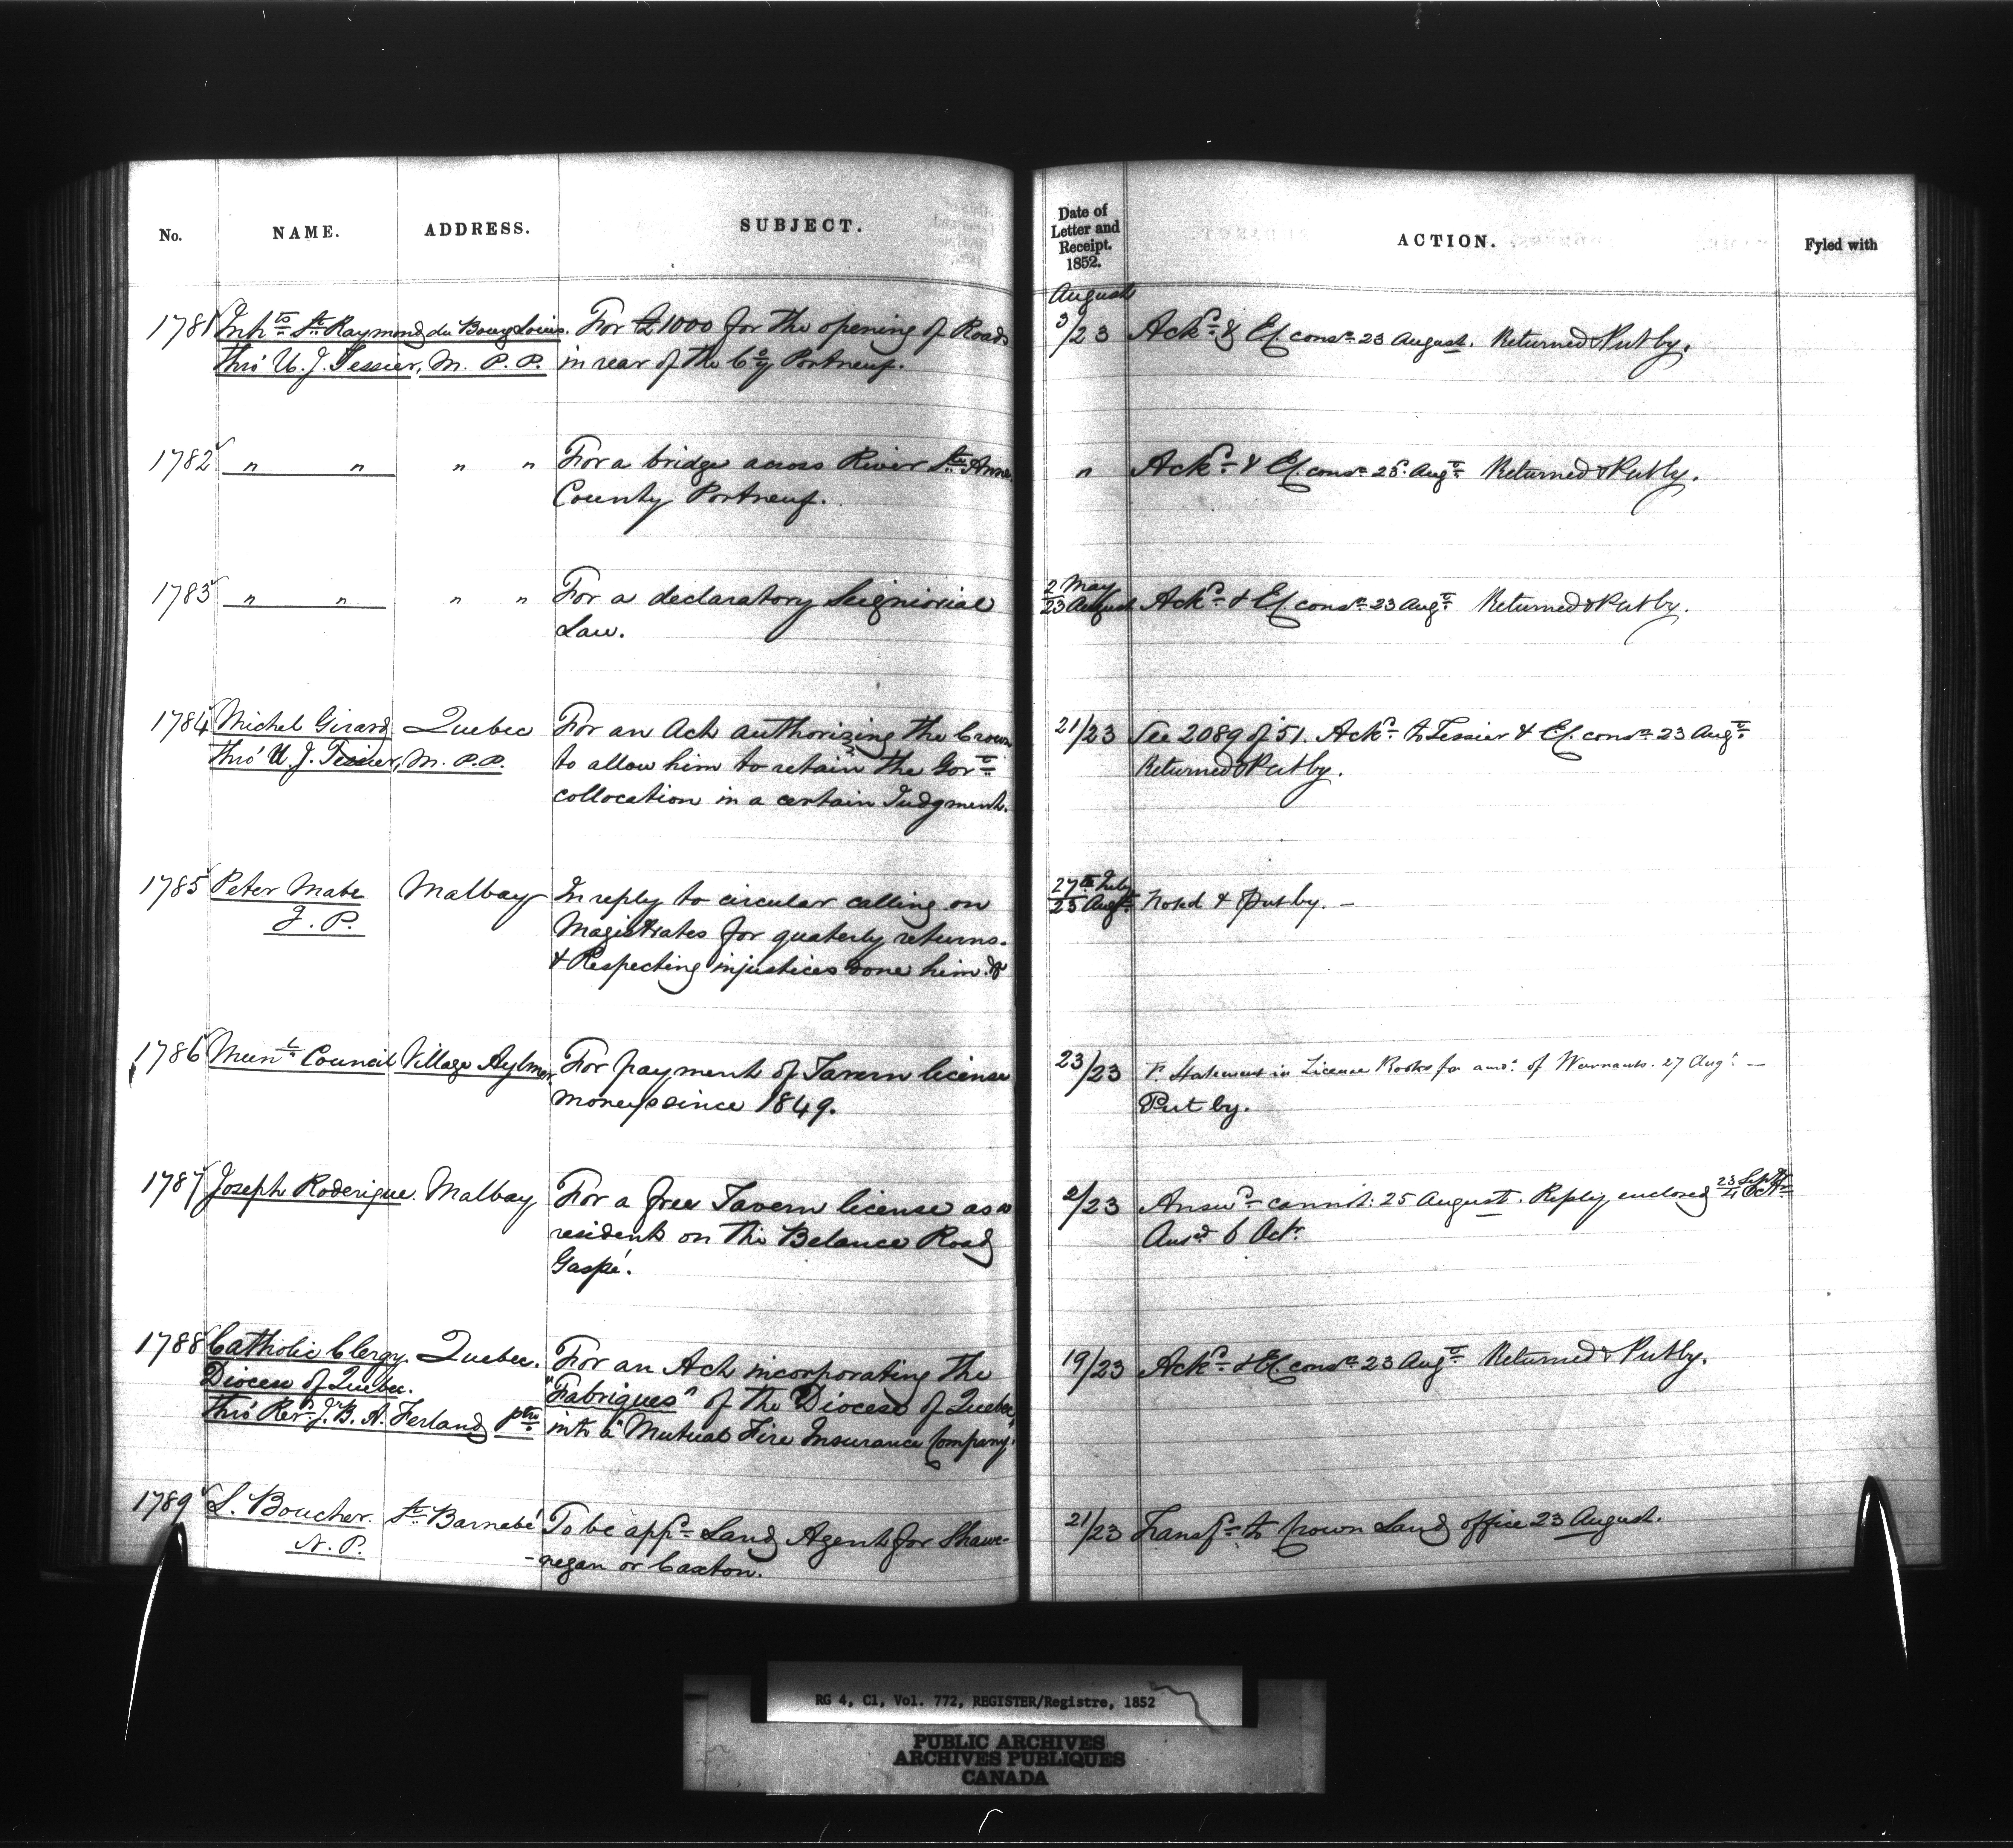 No. NAME. ADDRESS. SUBJECT. Date of Letter and Receipt. 1852. ACTION. Fyled with
August
1781 Inhts St Raymond du Bourg Louis. For £1000 for the opening of Roads 3/23 Ackd & Ex. consn 23 August. Returned & Put by.
thro' U. J. Tessier, M. P. P. in rear of the Coy Portneuf.
1782 " " " " For a bridge across River Ste Anne " Ackd & Ex. consn 23 Augt Returned & Put by.
County Portneuf.
1783 " " " " For a declaratory Seigniorial 2 May / 23 August Ackd & Ex. consn 23 Augt Returned & Put by.
Law.
1784 Michel Girard Quebec For an Act authorizing the Crown 21/23 See 2089 of 51. Ackd to Tessier & Ex. consn 23 Augt
thro' U. J. Tessier, M. P. P. to allow him to retain the Govt Returned & Put by.
collocation in a certain Judgment.
1785 Peter Mabe Malbay In reply to circular calling on 27th July / 23 Augt Noted & Put by. —
J. P. Magistrates for quaterly returns.
& Respecting injustices done him &c
1786 Munl Council Village Aylmer For payment of Tavern license 23/23 V. Statement in License Books for amt of Warrants. 27 Augt —
moneys since 1849. Put by.
1787 Joseph Roderique. Malbay For a free Tavern license as a 2/23 Answd cannot: 25 August. Reply enclosed 23 Septr / 4 Octr
resident on the Belance Road Ansd 6 Octr
Gaspé.
1788 Catholic Clergy Quebec. For an Act incorporating the 19/23 Ackd & Ex. consn 23 Augt Returned & Put by.
Diocese of Quebec. "Fabriques" of the Diocese of Quebec
thro' Revd J. B. A. Ferland ptre into a "Mutual Fire Insurance Company."
1789 L. Boucher. St Barnabé To be appd Land Agent for Shawe- 21/23 Transfd to Crown Land office 23 August.
N. P. -negan or Caxton.
RG 4, C1, Vol. 772, REGISTER/Registre, 1852
PUBLIC ARCHIVES
ARCHIVES PUBLIQUES
CANADA